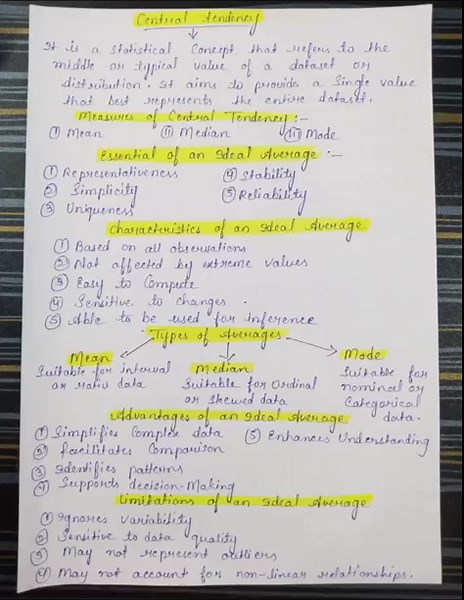 Central Tendency
It is a statistical concept that refers to the
middle or typical value of a dataset or
distribution. It aims to provide a single value
that best represents the entire dataset.
Measures of Central Tendency :-
(i) Mean (ii) Median (iii) Mode
Essential of an Ideal Average :-
① Representativeness ④ Stability
② Simplicity ⑤ Reliability
③ Uniqueness
Characteristics of an Ideal Average
① Based on all observations
② Not affected by extreme values
③ Easy to Compute
④ Sensitive to changes.
⑤ Able to be used for inference
Types of Averages
Mean Median Mode
Suitable for interval or ratio data
Suitable for Ordinal or skewed data
Suitable for nominal or Categorical data.
Advantages of an Ideal Average
① Simplifies Complex data ⑤ Enhances Understanding
② Facilitates Comparison
③ Identifies patterns
④ Supports decision-Making
Limitations of an Ideal Average
① Ignores Variability
② Sensitive to data quality
③ May not represent outliers
④ May not account for non-linear relationships.